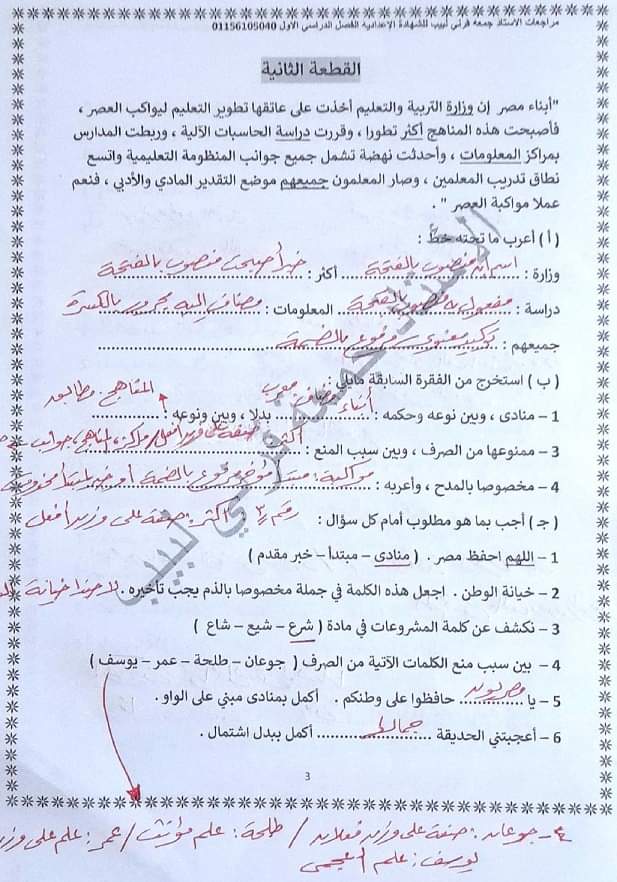 مراجعات الاستاذ جمعه قرني لبيب للشهادة الإعدادية الفصل الدراسي الاول 01156105040
القطعة الثانية
"أبناء مصر إن وزارة التربية والتعليم أخذت على عاتقها تطوير التعليم ليواكب العصر ،
فأصبحت هذه المناهج أكثر تطورا ، وقررت دراسة الحاسبات الآلية ، وربطت المدارس
بمراكز المعلومات ، وأحدثت نهضة تشمل جميع جوانب المنظومة التعليمية واتسع
نطاق تدريب المعلمين ، وصار المعلمون جميعهم موضع التقدير المادي والأدبي ، فنعم
عملا مواكبة العصر " .
( أ ) أعرب ما تحته خط :
وزارة : اسم إن منصوب بالفتحة أكثر : خبر أصبحت منصوب بالفتحة
دراسة : مفعول به منصوب بالفتحة المعلومات : مضاف إليه مجرور بالكسرة
جميعهم : توكيد معنوي مرفوع بالضمة
( ب ) استخرج من الفقرة السابقة مايلي :
1 – منادى ، وبين نوعه وحكمه : أبناء مضاف بدلا ، وبين ونوعه : المناهج : مطابق
3 – ممنوعها من الصرف ، وبين سبب المنع : أكثر صفة على وزن أفعل / مراكز، مناهج، جوانب
4 – مخصوصا بالمدح ، وأعربه : مواكبة : مبتدأ مؤخر مرفوع بالضمة أو خبر لمبتدأ محذوف
( جـ ) أجب بما هو مطلوب أمام كل سؤال : رقم ٣ أكثر : صفة على وزن أفعل
1 – اللهم احفظ مصر . ( منادى – مبتدأ – خبر مقدم )
2 – خيانة الوطن . اجعل هذه الكلمة في جملة مخصوصا بالذم يجب تأخيره . لا حبذا خيانة
3 – نكشف عن كلمة المشروعات في مادة ( شرع – شيع – شاع )
4 – بين سبب منع الكلمات الآتية من الصرف ( جوعان – طلحة – عمر – يوسف )
5 – يا مصريون حافظوا على وطنكم . أكمل بمنادى مبني على الواو .
6 – أعجبتني الحديقة جمالها أكمل ببدل اشتمال .
3
٤ – جوعان : صفة على وزن فعلان / طلحة : علم مؤنث / عمر : علم على وزن
يوسف : علم أعجمي